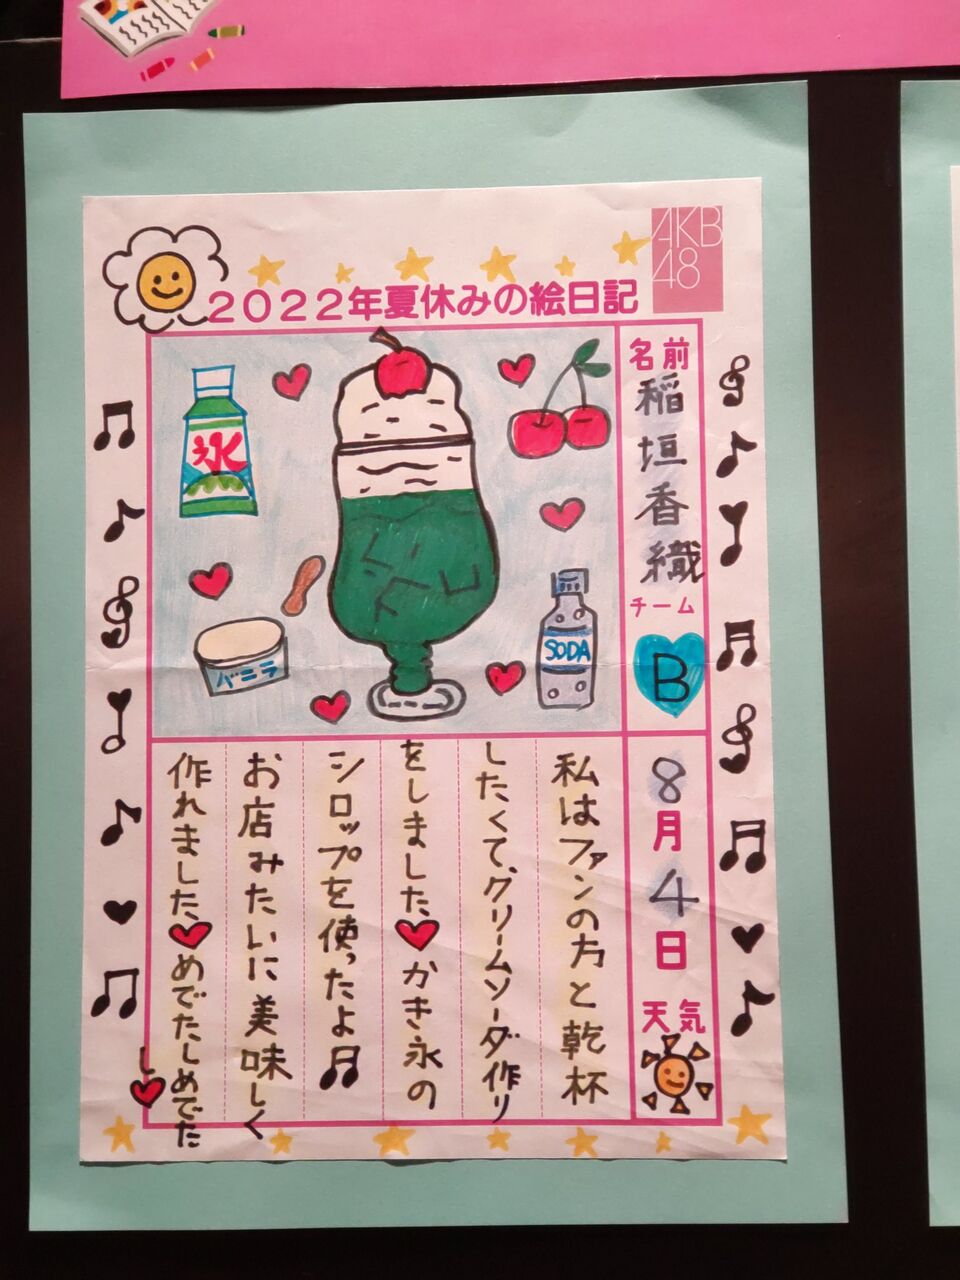 AKB
48
2022年夏休みの絵日記
名前
稲垣香織
チーム
B
8月4日
天気
氷
バニラ
SODA
私はファンの方と乾杯
したくて、クリームソーダ作り
をしました♥かき氷の
シロップを使ったよ♬
お店みたいに美味しく
作れました♥めでたしめでた
し♥